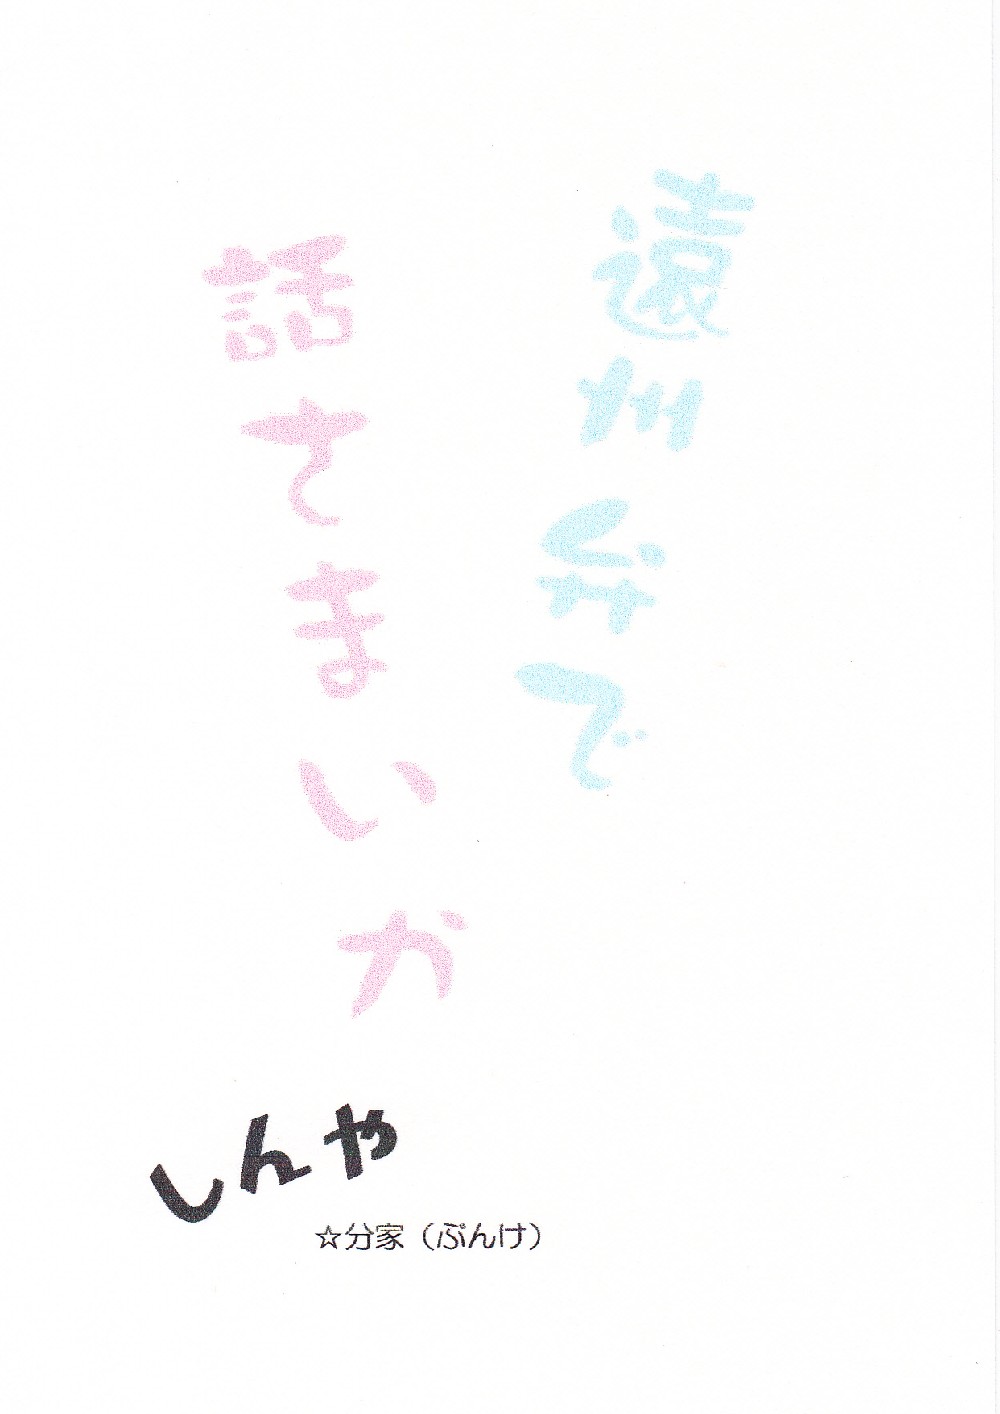 遠州弁で
話さまいか
しんや
☆分家（ぷんけ）